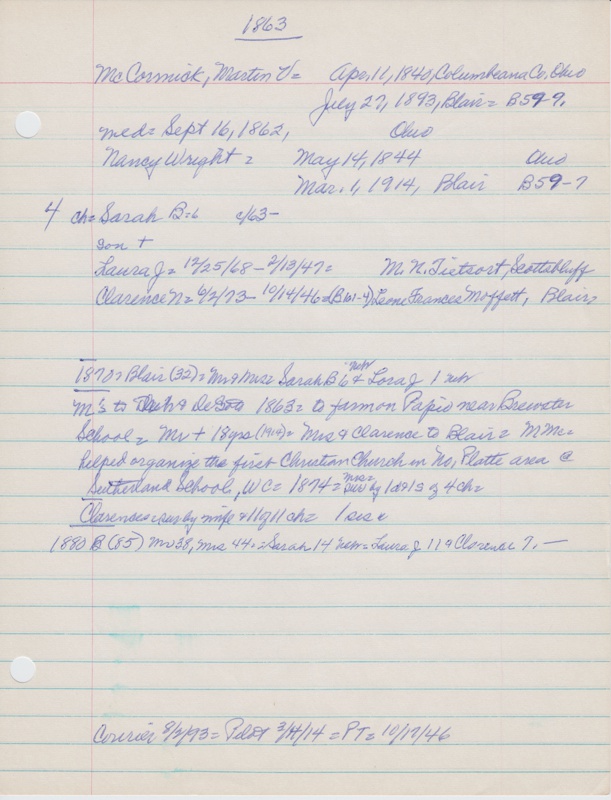 1863
McCormick, Martin V= Apr. 11, 1840, Columbeana Co, Ohio
July 27, 1893, Blair= B59-7.
med= Sept 16, 1862, Ohio
Nancy Wright = May 14, 1844 Ohio
Mar. 1, 1914, Blair B59-7
4 ch= Sarah B=6 c/63-
son +
Laura J= 12/25/68 - 2/13/47= M. N. Tietsort, Scottsbluff
Clarence N= 6/2/73 - 10/14/46=(B61-4) Leone Frances Moffett, Blair,
1870= Blair (32)= Mr & Mrs= Sarah B 6 Neb & Lora J 1 neb
M's to Neb & DeSoto 1863= to farm on Papio near Brewster
School= Mr + 18 yrs (1912)= Mrs & Clarence to Blair= M Mc=
helped organize the first Christian Church in No, Platte area @
Sutherland School, WC= 1874= Mrs= sur by 1 d & 1 s of 4 ch=
Clarence= sur by wife & 11 of 11 ch= 1 sis &
1880 B (85) Mr 38, Mrs 44.= Sarah 14 Neb= Laura J 11 & Clarence 7. -
Courier 8/2/93= Pilot 3/4/14= PT= 10/17/46